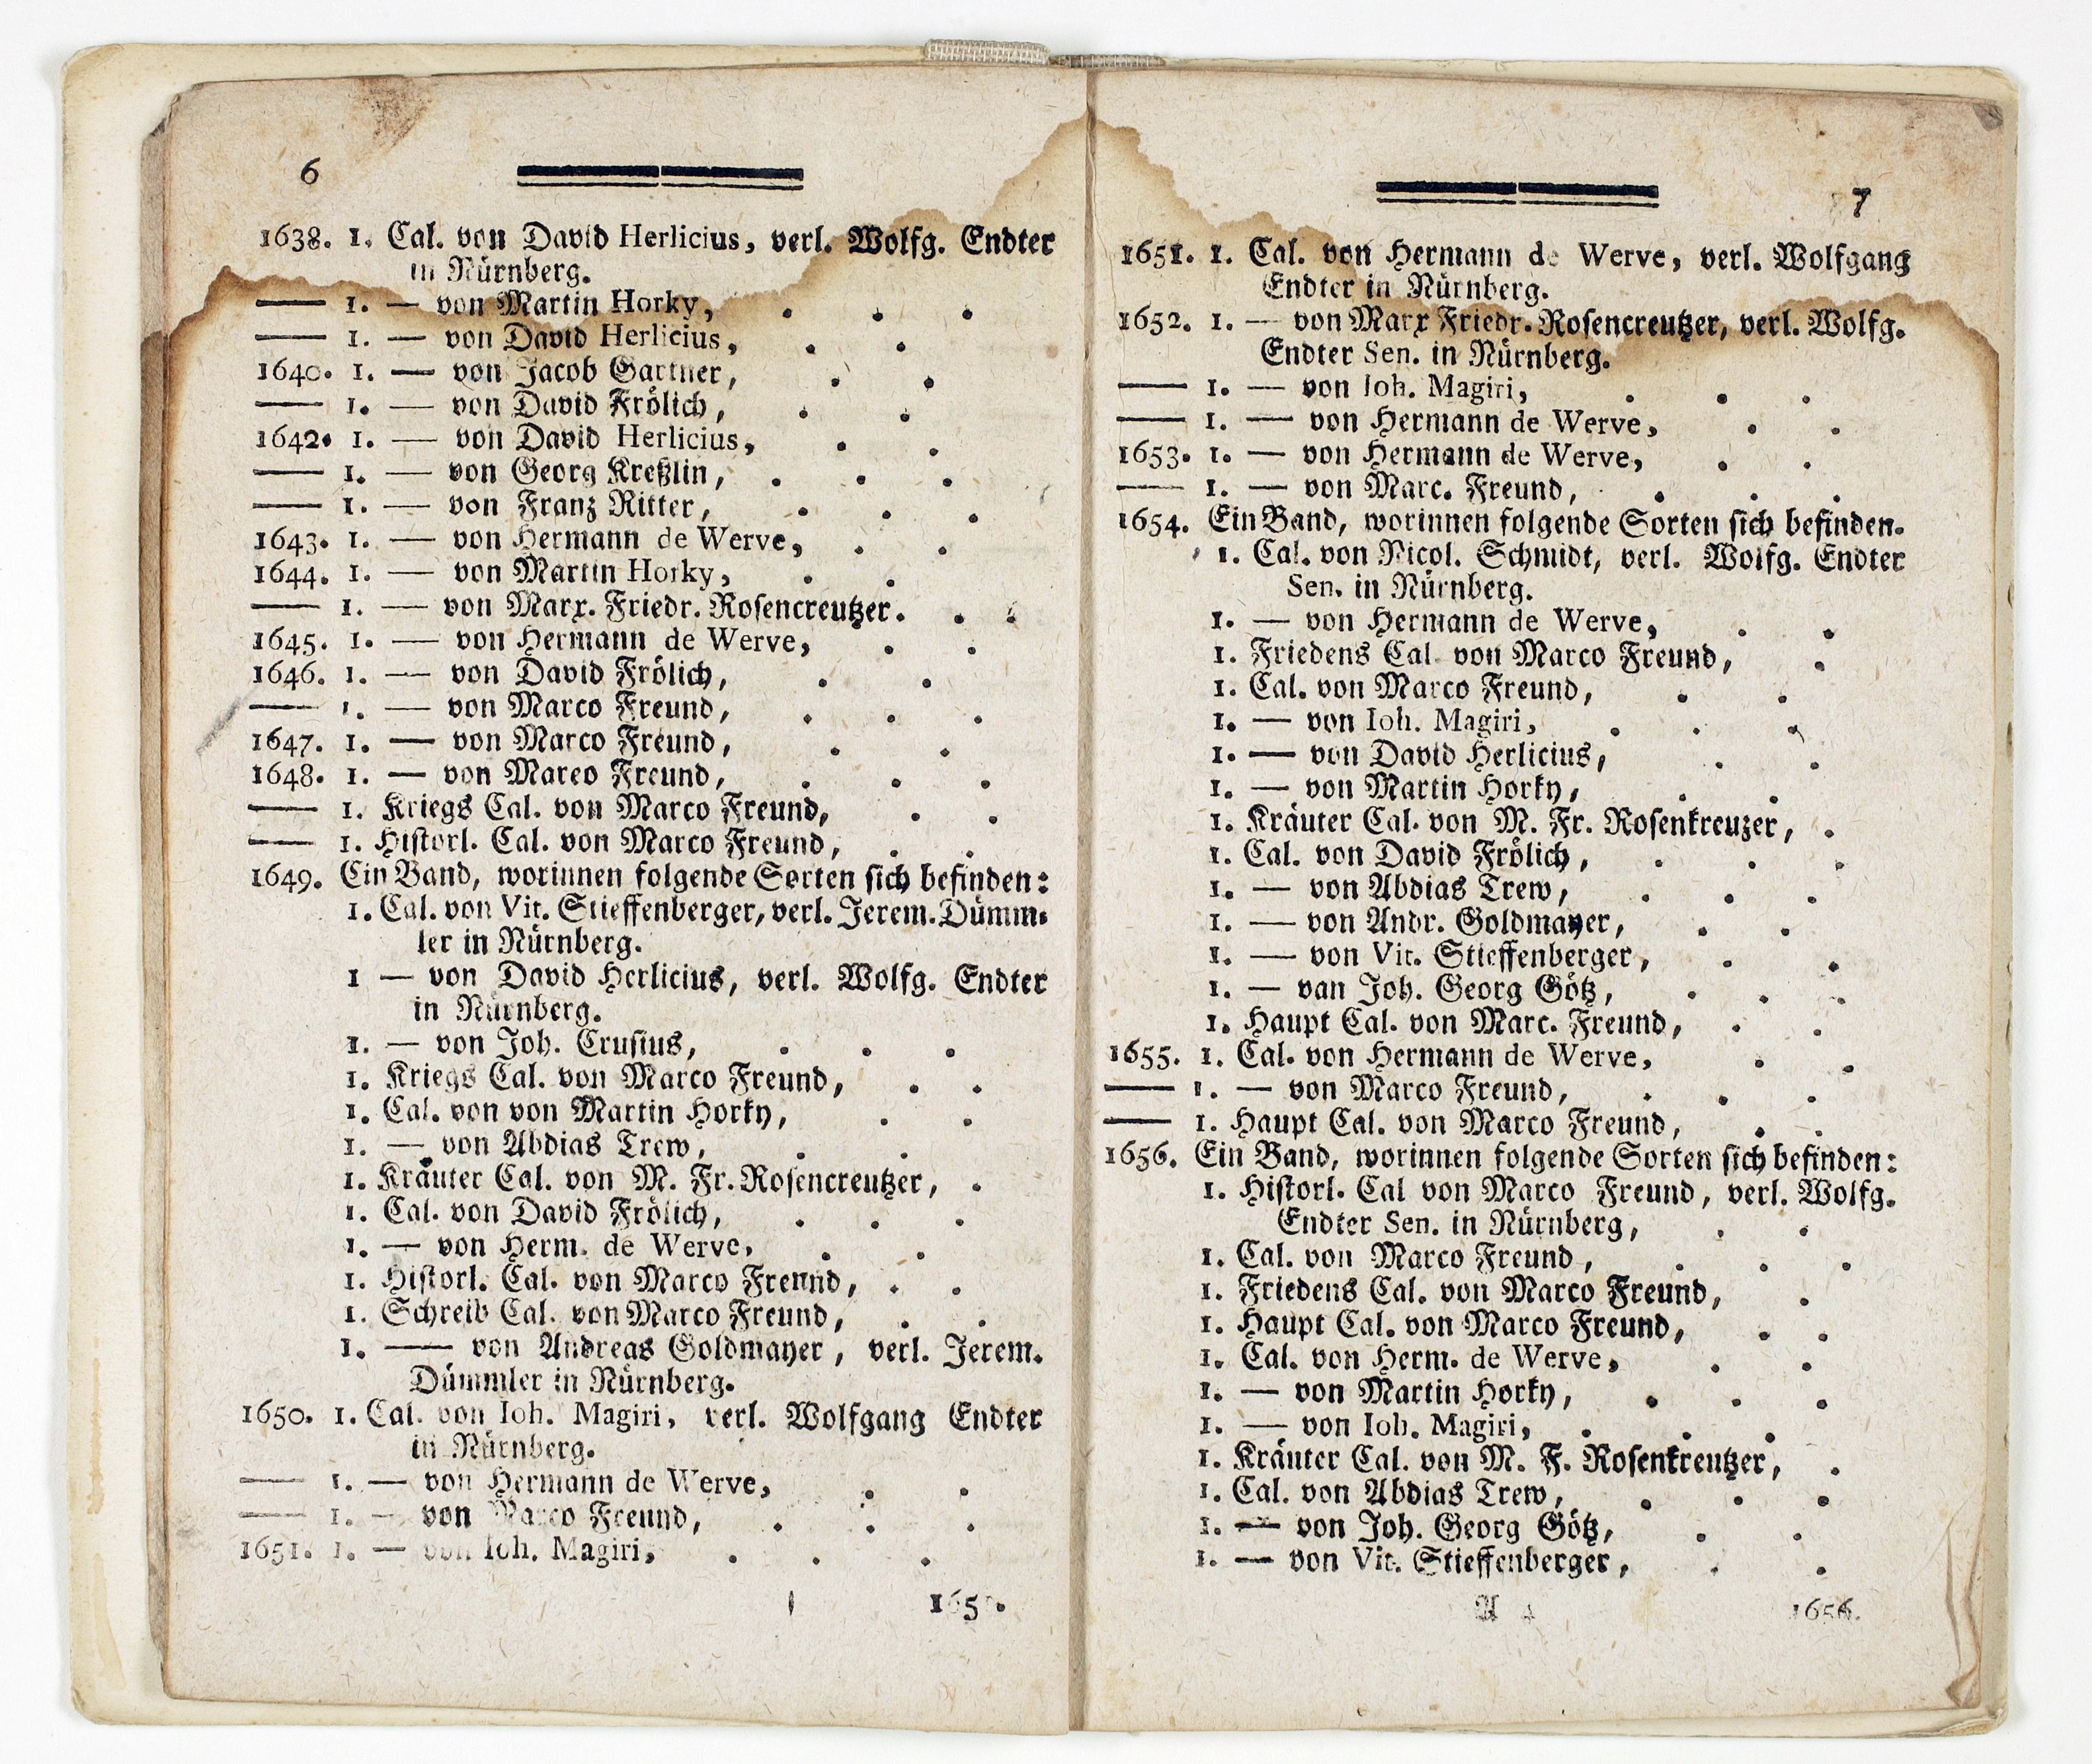 6
1638. 1. Cal. von David Herlicius, verl. Wolfg. Endter
in Nürnberg.
—— 1. — von Martin Horky, . . .
—— 1. — von David Herlicius, . .
1640. 1. — von Jacob Gartner, . .
—— 1. — von David Frölich, . .
1642. 1. — von David Herlicius, . .
—— 1. — von Georg Kreßlin, . . .
—— 1. — von Franz Ritter, . . .
1643. 1. — von Hermann de Werve, . .
1644. 1. — von Martin Horky, . .
—— 1. — von Marx. Friedr. Rosencreutzer. . .
1645. 1. — von Hermann de Werve, . .
1646. 1. — von David Frölich, . .
—— 1. — von Marco Freund, . . .
1647. 1. — von Marco Freund, . .
1648. 1. — von Mareo Freund, . . .
—— 1. Kriegs Cal. von Marco Freund, . .
—— 1. Historl. Cal. von Marco Freund, . .
1649. Ein Band, worinnen folgende Sorten sich befinden:
1. Cal. von Vit. Stieffenberger, verl. Jerem. Dümm-
ler in Nürnberg.
1 — von David Herlicius, verl. Wolfg. Endter
in Nürnberg.
1. — von Joh. Crusius, . . .
1. Kriegs Cal. von Marco Freund, . .
1. Cal. von von Martin Horky, . .
1. — von Abdias Trew, . .
1. Kräuter Cal. von M. Fr. Rosencreutzer, .
1. Cal. von David Frölich, . . .
1. — von Herm. de Werve, . .
1. Historl. Cal. von Marco Frennd, . .
1. Schreib Cal. von Marco Freund, . .
1. —— von Andreas Goldmayer, verl. Jerem.
Dümmler in Nürnberg.
1650. 1. Cal. von Ioh. Magiri, verl. Wolfgang Endter
in Nürnberg.
—— 1. — von Hermann de Werve, . .
—— 1. — von Marco Freund, . . .
1651. 1. — von Ioh. Magiri, . . .
7
1651. 1. Cal. von Hermann de Werve, verl. Wolfgang
Endter in Nürnberg.
1652. 1. — von Marx Friedr. Rosencreutzer, verl. Wolfg.
Endter Sen. in Nürnberg.
—— 1. — von Ioh. Magiri, . . .
—— 1. — von Hermann de Werve, . .
1653. 1. — von Hermann de Werve, . .
—— 1. — von Marc. Freund, . . .
1654. Ein Band, worinnen folgende Sorten sich befinden.
1. Cal. von Nicol. Schmidt, verl. Wolfg. Endter
Sen. in Nürnberg.
1. — von Hermann de Werve, . .
1. Friedens Cal. von Marco Freund, .
1. Cal. von Marco Freund, . .
1. — von Ioh. Magiri, . . .
1. — von David Herlicius, . .
1. — von Martin Horky, . .
1. Kräuter Cal. von M. Fr. Rosenkreuzer, .
1. Cal. von David Frölich, . . .
1. — von Abdias Trew, . . .
1. — von Andr. Goldmayer, . .
1. — von Vit. Stieffenberger, . .
1. — van Joh. Georg Götz, . . .
1. Haupt Cal. von Marc. Freund, . .
1655. 1. Cal. von Hermann de Werve, . .
—— 1. — von Marco Freund, . . .
—— 1. Haupt Cal. von Marco Freund, . .
1656. Ein Band, worinnen folgende Sorten sich befinden:
1. Historl. Cal von Marco Freund, verl. Wolfg.
Endter Sen. in Nürnberg, . .
1. Cal. von Marco Freund, . . .
1. Friedens Cal. von Marco Freund, .
1. Haupt Cal. von Marco Freund, . .
1. Cal. von Herm. de Werve, . .
1. — von Martin Horky, . . .
1. — von Ioh. Magiri, . . .
1. Kräuter Cal. von M. F. Rosenkreutzer, .
1. Cal. von Abdias Trew, . . .
1. — von Joh. Georg Götz, . .
1. — von Vit. Stieffenberger, . .
A 4 1656.